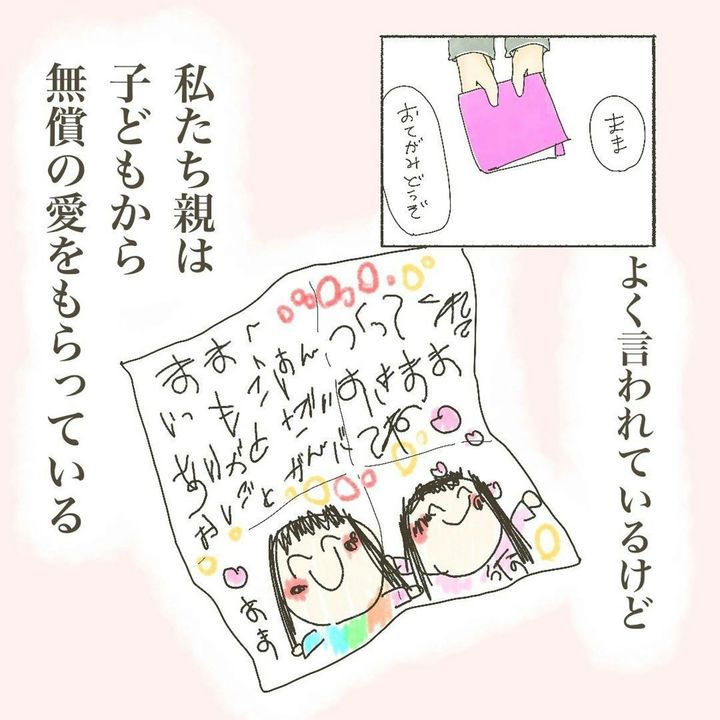 まま
おてがみどうぞ
よく言われているけど
まま ごはん つくってくれて
いつも
ありがと だいすき まま
おしごと がんばってね
まま
私たち親は
子どもから
無償の愛をもらっている